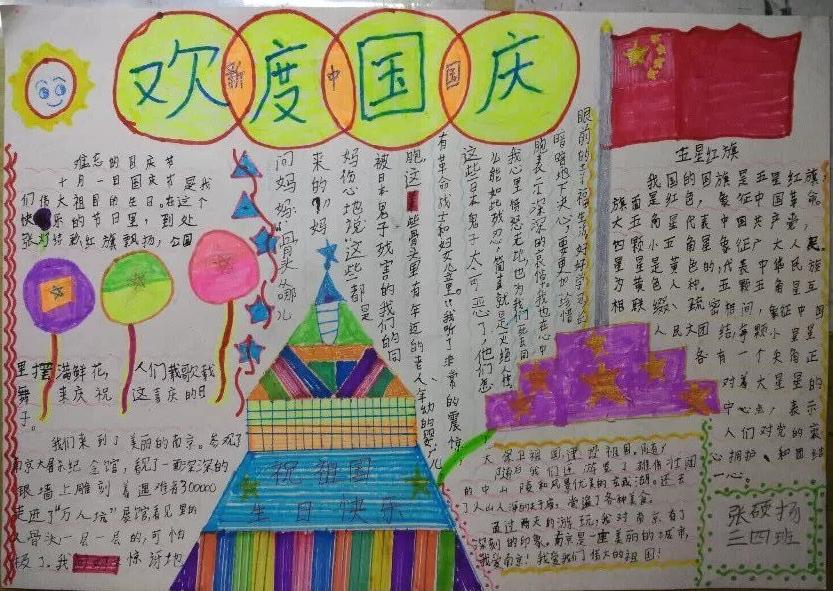 欢度国庆
新中国
难忘的国庆节
十月一日国庆节是我
们伟大祖国的生日。在这个
快乐的节日里，到处
张灯结彩红旗飘扬，公园
里摆满鲜花，人们载歌载
舞，来庆祝这喜庆的日
子。
我们来到了美丽的南京。参观了
南京大屠杀纪念馆，
银墙上雕刻着遇难者300000
走进了"万人坑"展馆，看见里的
人骨头一层一层的，可怕
极了。我惊讶地
问妈妈："骨头哪儿
来的？"妈
妈伤心地说："这些都是
被日本鬼子残害的我们的同
胞，这些骨头里有年迈的老人、年幼的婴儿、
有革命战士和妇女儿童！"我听了非常的震惊，
这些日本鬼子太可恶了，他们怎
么能如此残忍，简直就是灭绝人性
我心里愤怒无比，也为我们死去同
胞表示深深的哀悼。我也在心中
暗暗地下决心，要更加珍惜
眼前的幸福生活，好好学习，
大保卫祖国建设祖国。
随后我们还游览了雄伟壮阔
的中山陵和风景优美的玄武湖。还去
了人山人海的夫子庙，尝遍了各种美食。
通过两天的游玩，我对南京有了
深刻的印象。南京是一座美丽的城市，
我爱南京！我爱我们伟大的祖国！
祝祖国
生日快乐
五星红旗
我国的国旗是五星红旗
旗面是红色，象征中国革命，
大五角星代表中国共产党，
四颗小五角星象征广大人民。
星星是黄色的，代表中华民族
为黄色人种。五颗五角星互
相联缀、疏密相间，象征中国
人民大团结，每颗小星星
各有一个尖角正
对着大星星的
中心点，表示
人们对党的衷
心拥护、和团结
一心。
张硕扬
三四班